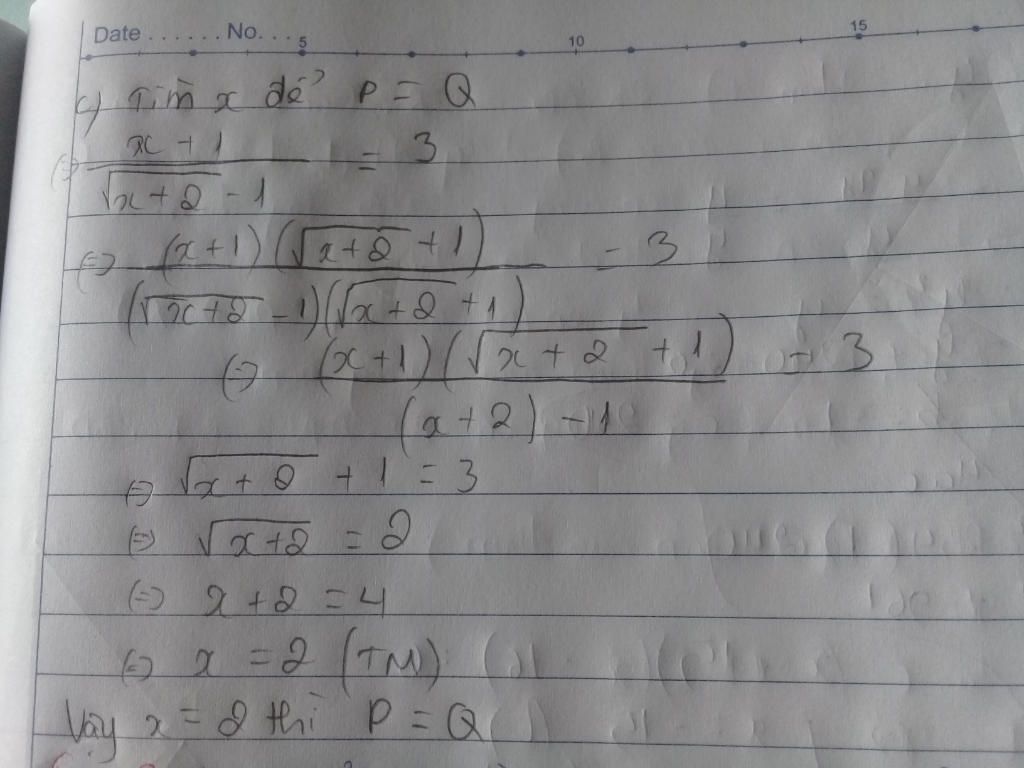 Date ...... No....
5 10 15
c) Tìm x để P = Q
(=) x + 1 / √(x+2) - 1 = 3
(=) (x+1)(√(x+2) + 1) / (√(x+2) - 1)(√(x+2) + 1) = 3
(=) (x+1)(√(x+2) + 1) / (x+2) - 1 = 3
(=) √(x+2) + 1 = 3
(=) √(x+2) = 2
(=) x+2 = 4
(=) x = 2 (TM)
Vậy x = 2 thì P = Q